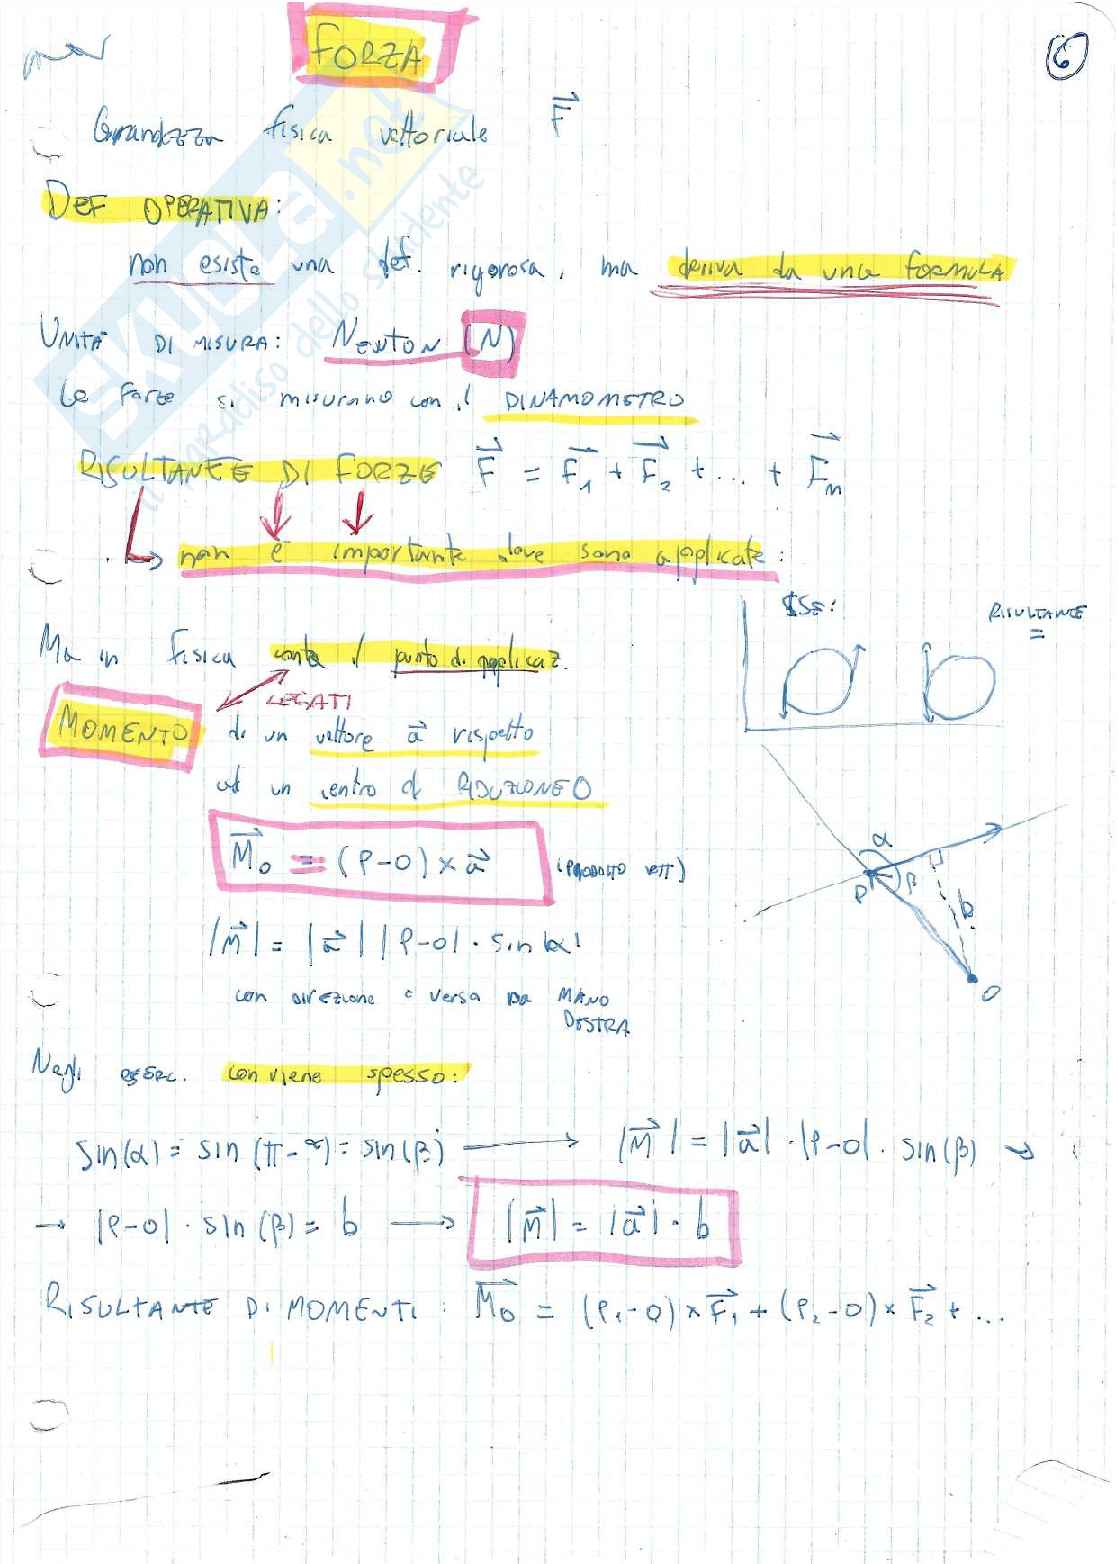 FORZA
6
Grandezza fisica vettoriale F⃗
DEF OPERATIVA:
non esiste una def. rigorosa, ma deriva da una FORMULA
UNITÀ DI MISURA: NEWTON (N)
Le forze si misurano con il DINAMOMETRO
RISULTANTE DI FORZE F⃗ = F⃗₁ + F⃗₂ + ... + F⃗ₙ
non è importante dove sono applicate:
ESE: RISULTANTE =
Ma in fisica conta il punto di applicaz.
LEGATI
MOMENTO di un vettore a⃗ rispetto
ad un centro di RIDUZIONE O
M⃗₀ = (P-O) × a⃗ (PRODOTTO VETT)
α
P β
b
O
|M⃗| = |a⃗| |P-O| · sin|α|
con direzione e verso da MANO
DESTRA
Negli eserc. conviene spesso:
sin(α) = sin(π-α) = sin(β) → |M⃗| = |a⃗| · |P-O| · sin(β) →
→ |P-O| · sin(β) = b → |M⃗| = |a⃗| · b
RISULTANTE DI MOMENTI: M⃗₀ = (P₁-O) × F⃗₁ + (P₂-O) × F⃗₂ + ...
SKUOLA.net
il paradiso dello studente